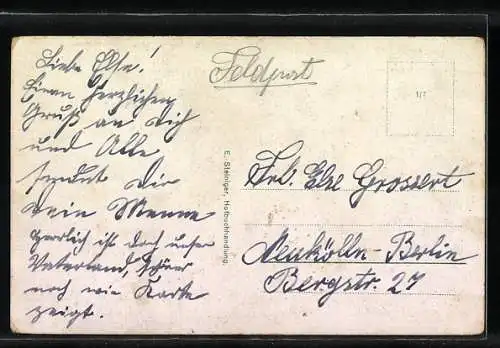 Liebe Else!
Einen herzlichen
Gruß an Dich
und Alle
sendet Dir
Dein Menne
Herrlich ist doch unser
Vaterland,
noch wie Karte
zeigt.
Feldpost
1/7
E. Steiniger, Hofbuchhandlung.
Frl. Else Grossert
Neukölln-Berlin
Bergstr. 27